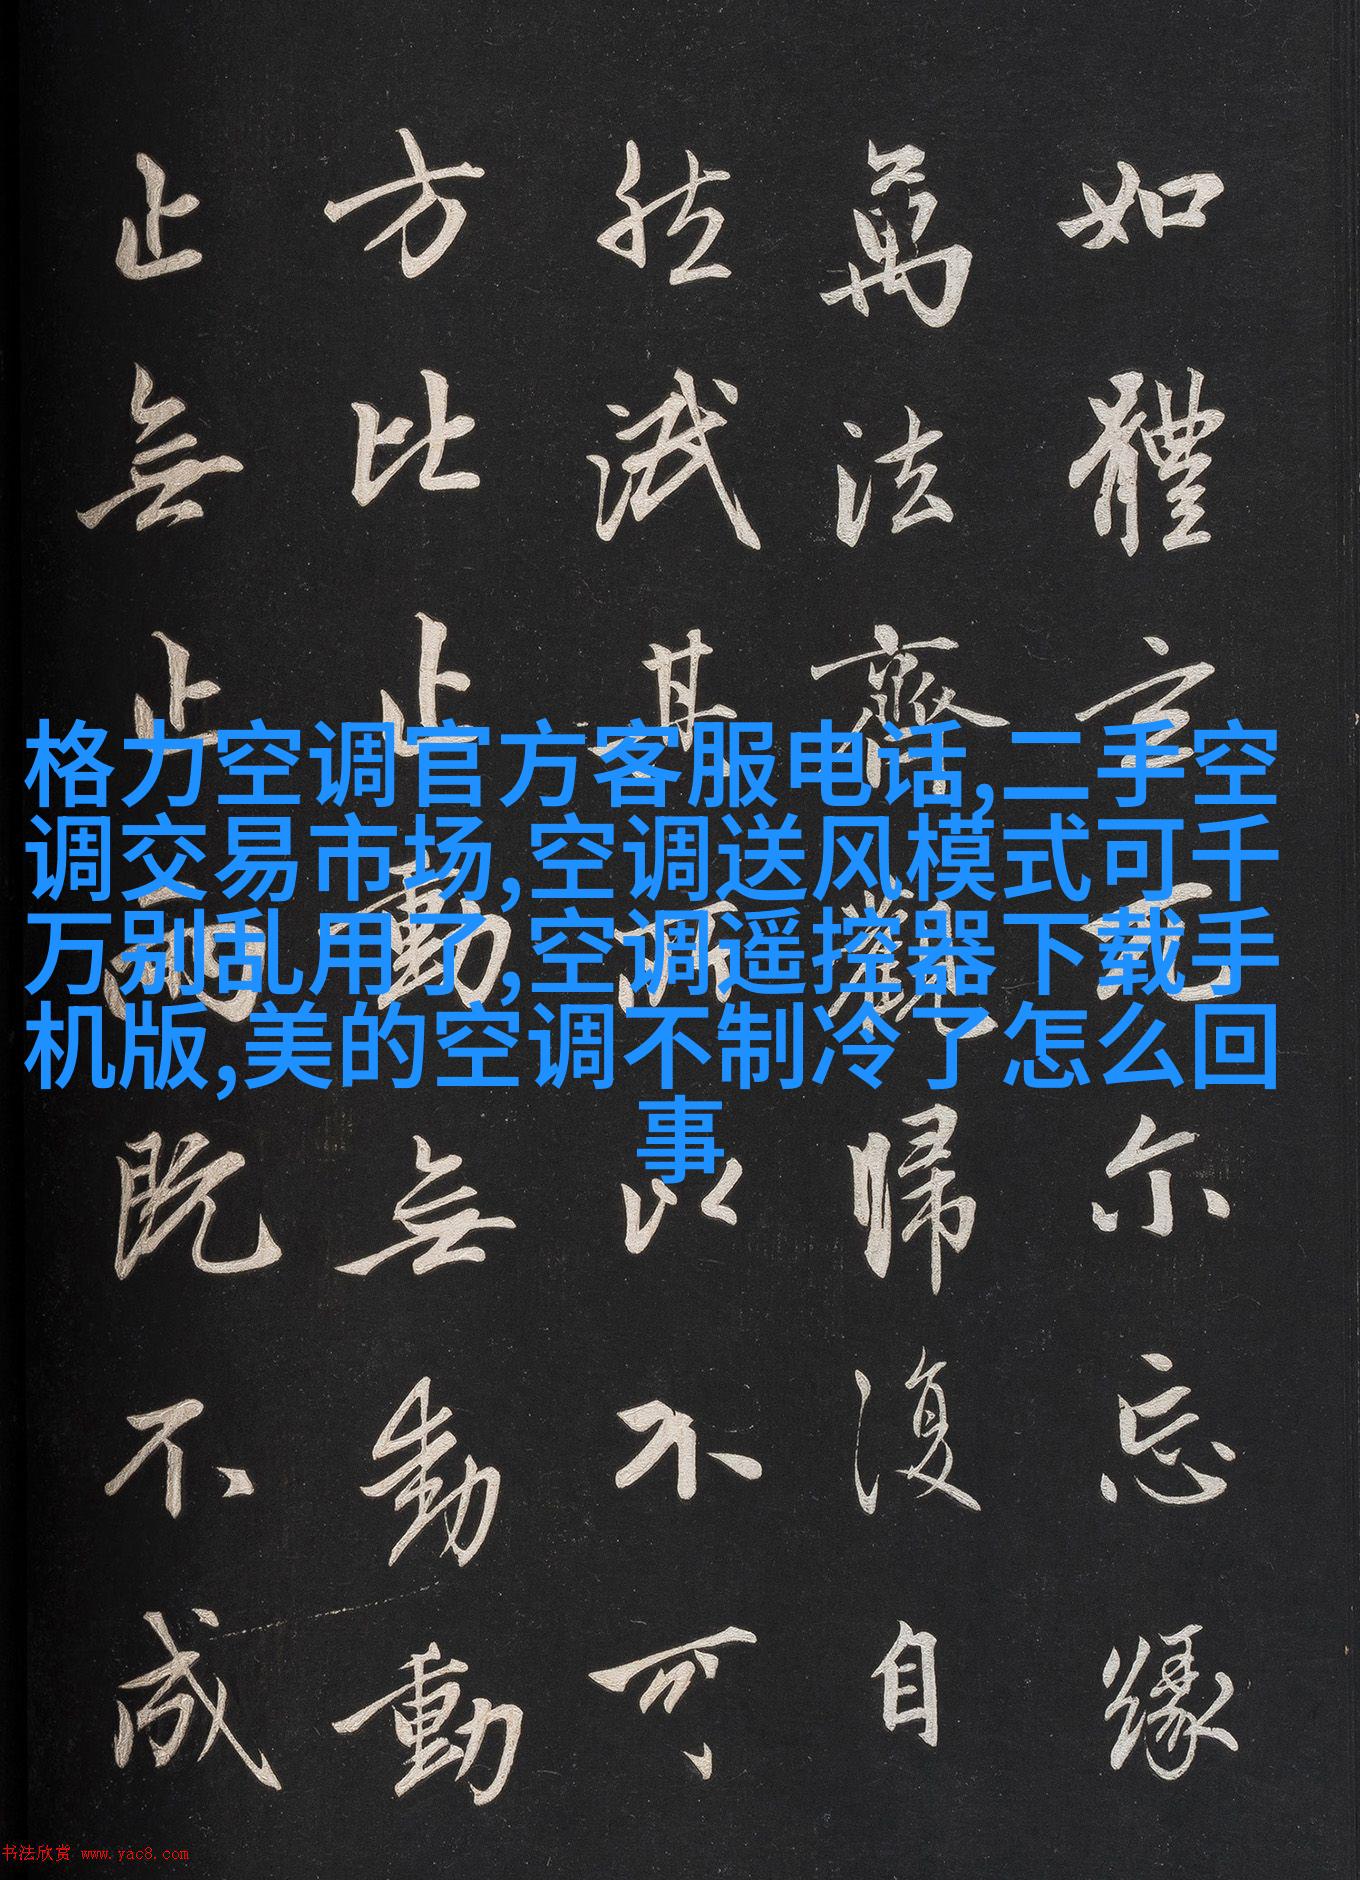 如體玄兀尔忘緣
萬法齊觀歸復自
然泯其所以不可
方比止動無動動
止無止兩既不成
格力空调官方客服电话,二手空
调交易市场,空调送风模式可千
万别乱用了,空调遥控器下载手
机版,美的空调不制冷了怎么回
事
书法欣赏 www.yac8.com